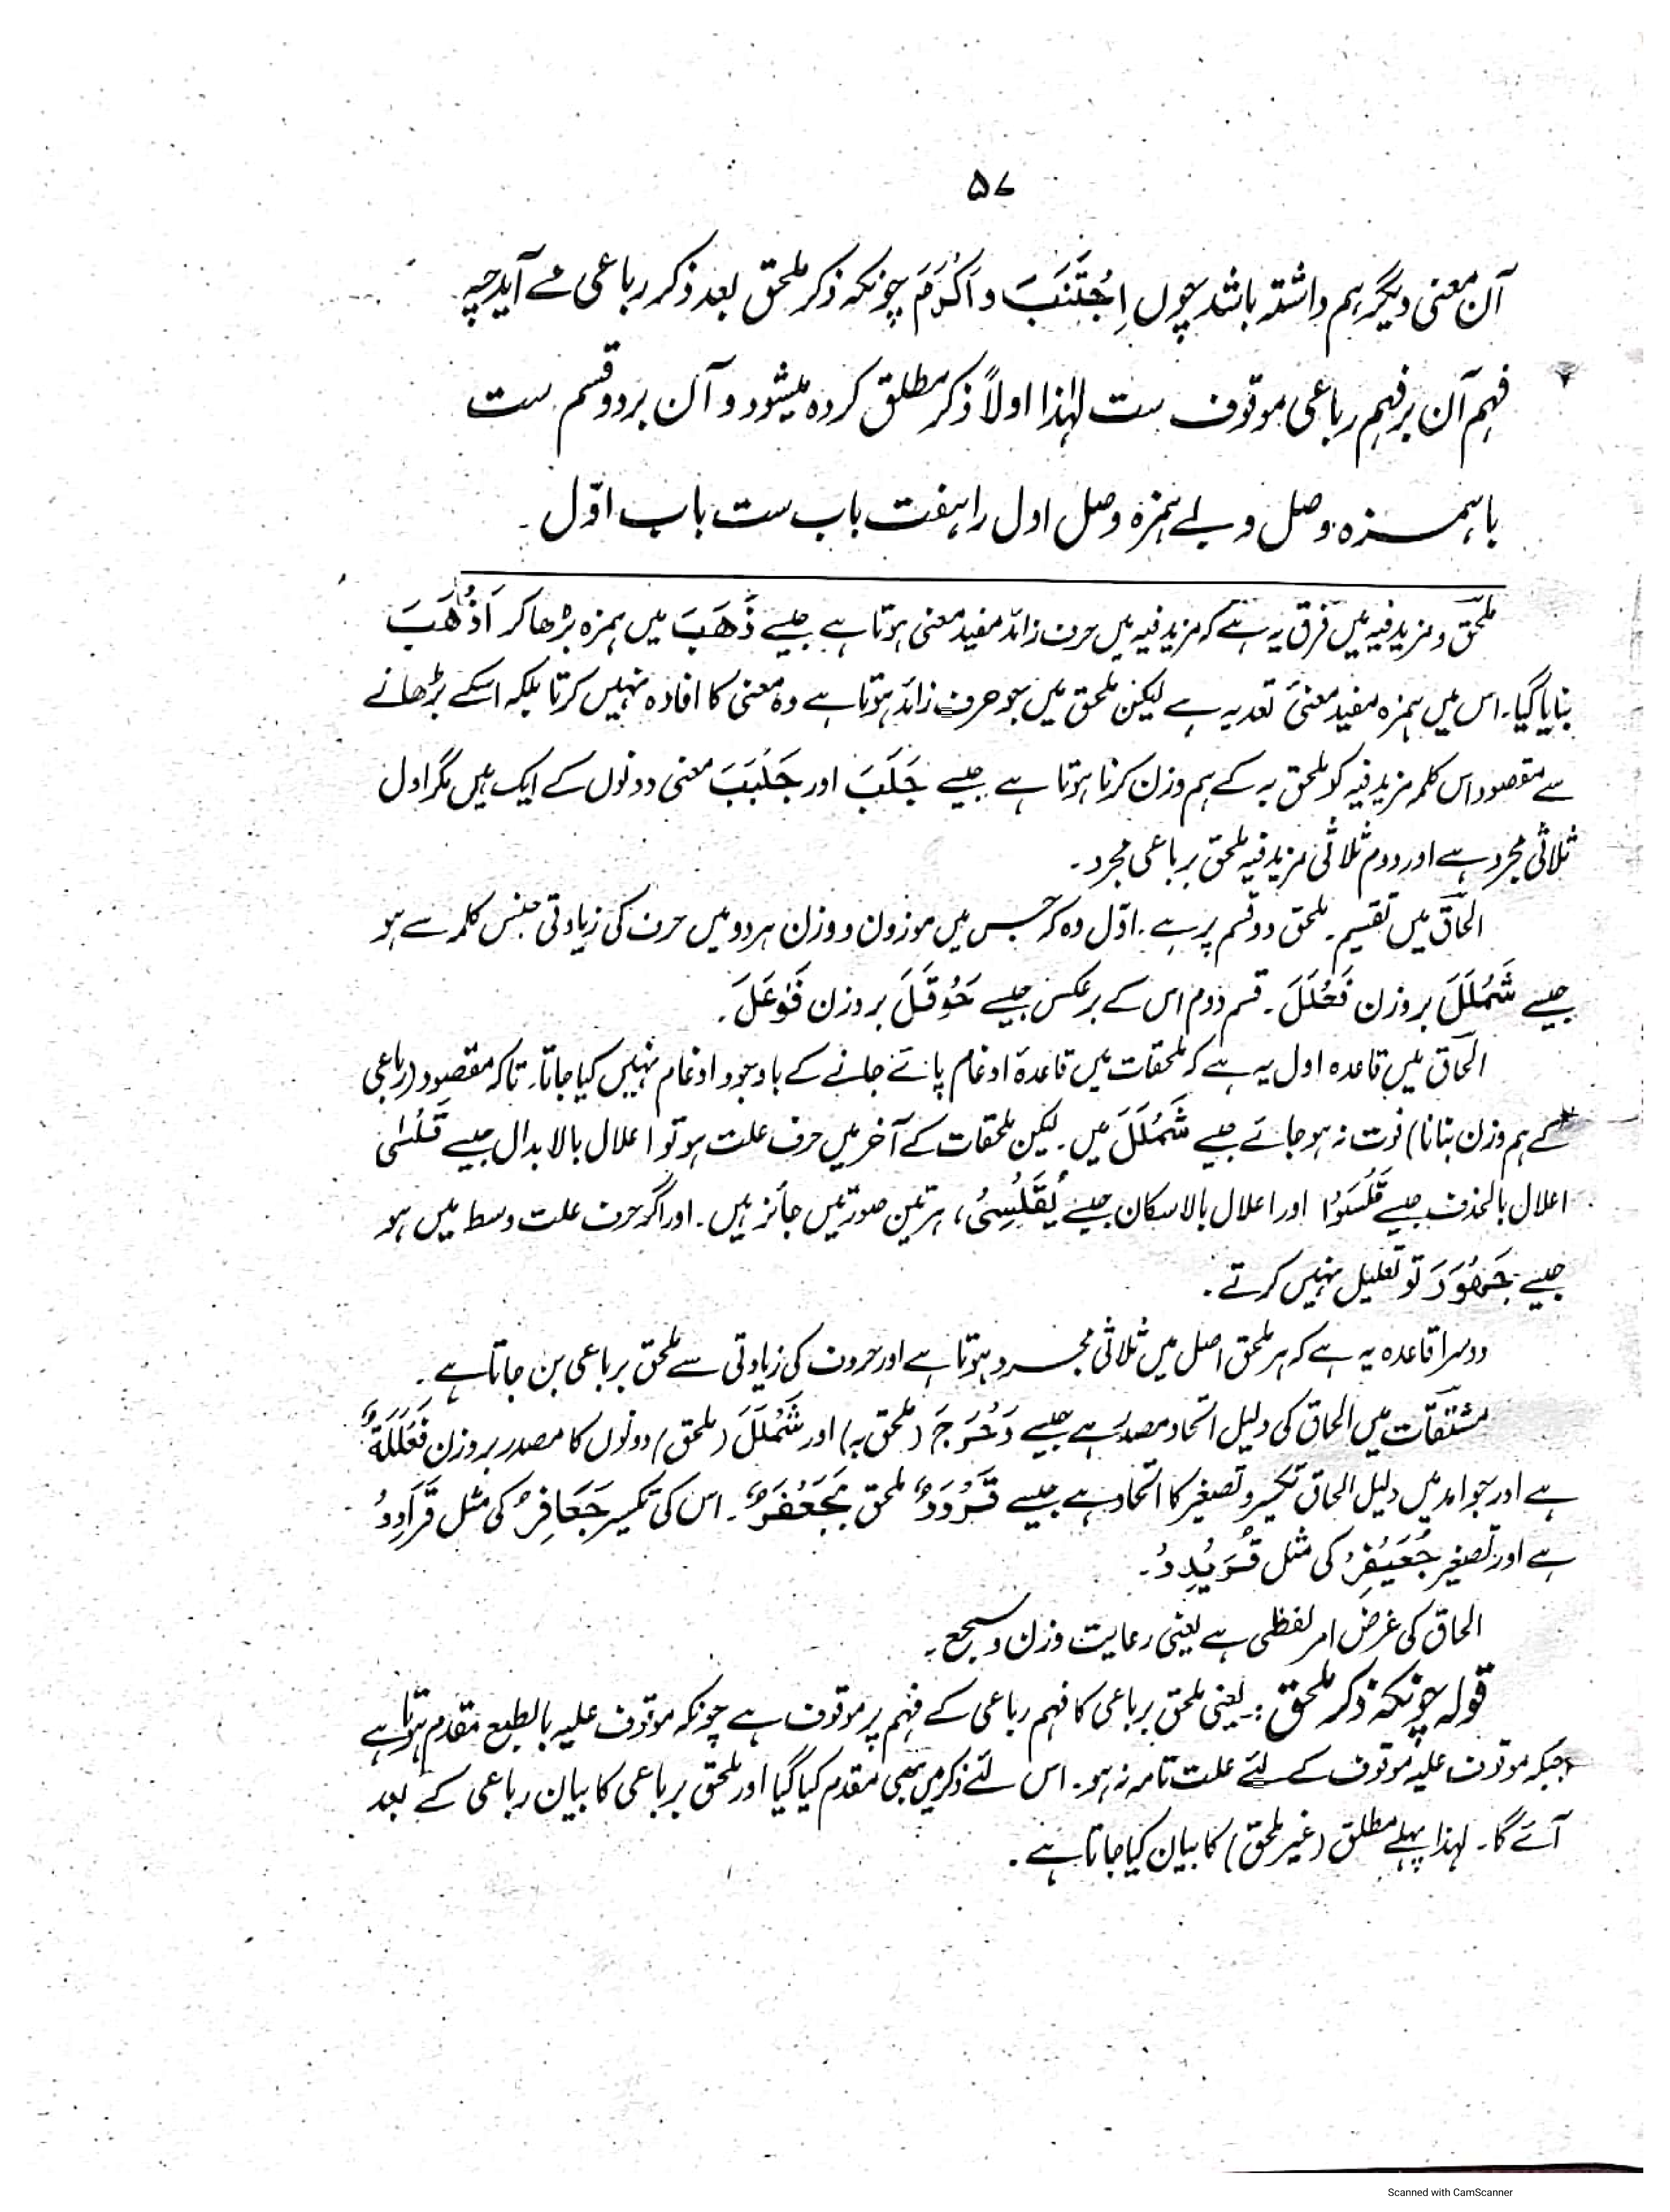 ۵۷
آن معنی دیگر ہم داشتہ باشد چوں اِجْتَنَبَ و اَکْرَمَ چونکہ ذکر ملحق بعد ذکر رباعی مے آید چہ
فہم آن بر فہم رباعی موقوف ست لہٰذا اولاً ذکر مطلق کردہ میشود و آن بر دو قسم ست
با ہمزہ وصل و بے ہمزہ وصل اول را ہفت باب ست باب اوّل ۔
ملحق و مزید فیہ میں فرق یہ ہے کہ مزید فیہ میں حرف زائد مفید معنی ہوتا ہے جیسے ذَهَبَ میں ہمزہ بڑھا کر اَذْهَبَ
بنایا گیا۔ اس میں ہمزہ مفید معنیٔ تعدیہ ہے لیکن ملحق میں جو حرف زائد ہوتا ہے وہ معنی کا افادہ نہیں کرتا بلکہ اسکے بڑھانے
سے مقصود اس کلمہ مزید فیہ کو ملحق بہ کے ہم وزن کرنا ہوتا ہے جیسے جَلَبَ اور جَلْبَبَ معنی دونوں کے ایک ہیں مگر اول
ثلاثی مجرد ہے اور دوم ثلاثی مزید فیہ ملحق برباعی مجرد۔
الحاق میں تقسیم۔ ملحق دو قسم پر ہے۔ اوّل وہ کہ جس میں موزون و وزن ہر دو میں حرف کی زیادتی جنس کلمہ سے ہو
جیسے شَمْلَلَ بروزن فَعْلَلَ۔ قسم دوم اس کے برعکس جیسے حَوْقَلَ بروزن فَوْعَلَ۔
الحاق میں قاعدہ اول یہ ہے کہ ملحقات میں قاعدۂ ادغام پائے جانے کے باوجود ادغام نہیں کیا جاتا۔ تاکہ مقصود (رباعی
کے ہم وزن بنانا) فوت نہ ہو جائے جیسے شَمْلَلَ میں۔ لیکن ملحقات کے آخر میں حرف علت ہو تو اعلال بالابدال جیسے قَلْسٰی
اعلال بالحذف جیسے قَلْسَوْا اور اعلال بالاسکان جیسے یُقَلْسِیْ، ہر تین صورتیں جائز ہیں۔ اور اگر حرف علت وسط میں ہو
جیسے جَهْوَرَ تو تعلیل نہیں کرتے۔
دوسرا قاعدہ یہ ہے کہ ہر ملحق اصل میں ثلاثی مجرد ہوتا ہے اور حروف کی زیادتی سے ملحق برباعی بن جاتا ہے۔
مشتقات میں الحاق کی دلیل اتحاد مصدر ہے جیسے دَحْرَجَ (ملحق بہ) اور شَمْلَلَ (ملحق) دونوں کا مصدر بروزن فَعْلَلَةٌ
ہے اور جوامد میں دلیل الحاق تکسیر و تصغیر کا اتحاد ہے جیسے قَرْدَدٌ ملحق بَجَعْفَرٌ۔ اس کی تکسیر جَعَافِرُ کی مثل قَرَادِدُ
ہے اور تصغیر جُعَیْفِرُ کی مثل قُرَیْدِدُ۔
الحاق کی غرض امر لفظی ہے یعنی رعایت وزن و سجع۔
قولہ چونکہ ذکر ملحق :۔ یعنی ملحق برباعی کا فہم رباعی کے فہم پر موقوف ہے چونکہ موقوف علیہ بالطبع مقدم ہوتا ہے
جبکہ موقوف علیہ موقوف کے لئے علت تامہ نہ ہو۔ اس لئے ذکر میں بھی مقدم کیا گیا اور ملحق برباعی کا بیان رباعی کے بعد
آئے گا۔ لہذا پہلے مطلق (غیر ملحق) کا بیان کیا جاتا ہے۔
Scanned with CamScanner